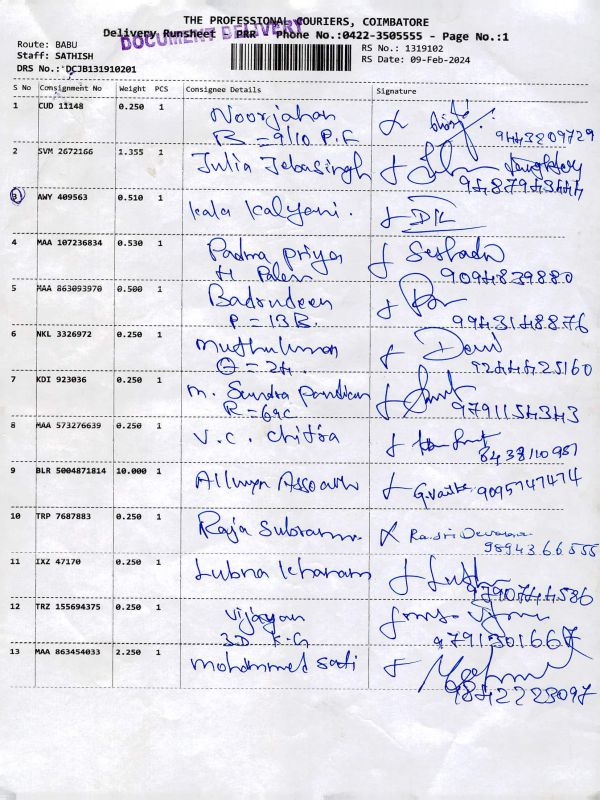 THE PROFESSIONAL COURIERS, COIMBATORE
DOCUMENT DELIVERY
Delivery Runsheet PRR - Phone No.:0422-3505555 - Page No.:1
Route: BABU
Staff: SATHISH
DRS No.: DCJB131910201
RS No.: 1319102
RS Date: 09-Feb-2024
S No Consignment No Weight PCS Consignee Details Signature
1 CUD 11148 0.250 1 Noorjahan
B = 9/10 P.F 9443209729
2 SVM 2672166 1.355 1 Julia Jebasingh
3 AWY 409563 0.510 1 Kala Kalyani.
4 MAA 107236834 0.530 1 Padma Priya Seshadri
9094839880
5 MAA 863093970 0.500 1 Badrudeen
P = 13B. 9943148876
6 NKL 3326972 0.250 1 Devi
= 24. 9244425160
7 KDI 923036 0.250 1 M. Sundra Pandian
R = 69c 9791154343
8 MAA 573276639 0.250 1 V.C. Chitra
8438110951
9 BLR 5004871814 10.000 1 Allwyn 9095747474
10 TRP 7687883 0.250 1 Raja
9894366555
11 IXZ 47170 0.250 1 Lubna
9790744586
12 TRZ 155694375 0.250 1 Vijayan
3D F-G 9791301667
13 MAA 863454033 2.250 1 Mohammed
9842223097